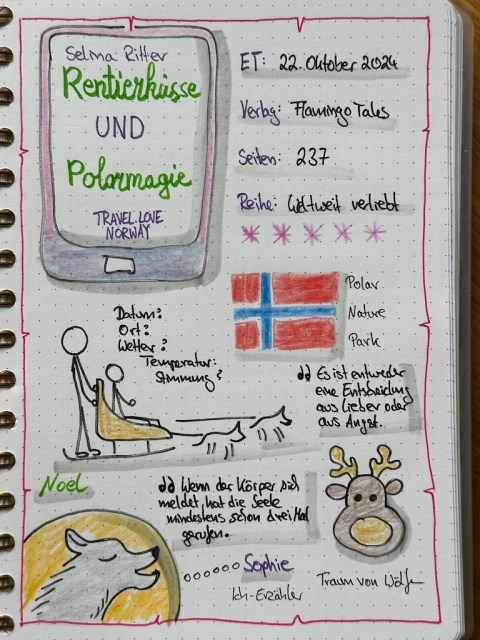 Selma Ritter
Rentierküsse
UND
Polarmagie
TRAVEL.LOVE
NORWAY
ET: 22. Oktober 2024
Verlag: Flamingo Tales
Seiten: 237
Reihe: Weltweit verliebt
Polar
Nature
Park
Datum?
Ort?
Wetter?
Temperatur?
Stimmung?
Es ist entweder
eine Entscheidung
aus Liebe oder
aus Angst.
Noel
Wenn der Körper sich
meldet, hat die Seele
mindestens schon drei Mal
gerufen.
Sophie
Ich-Erzähler
Traum von Wölfen